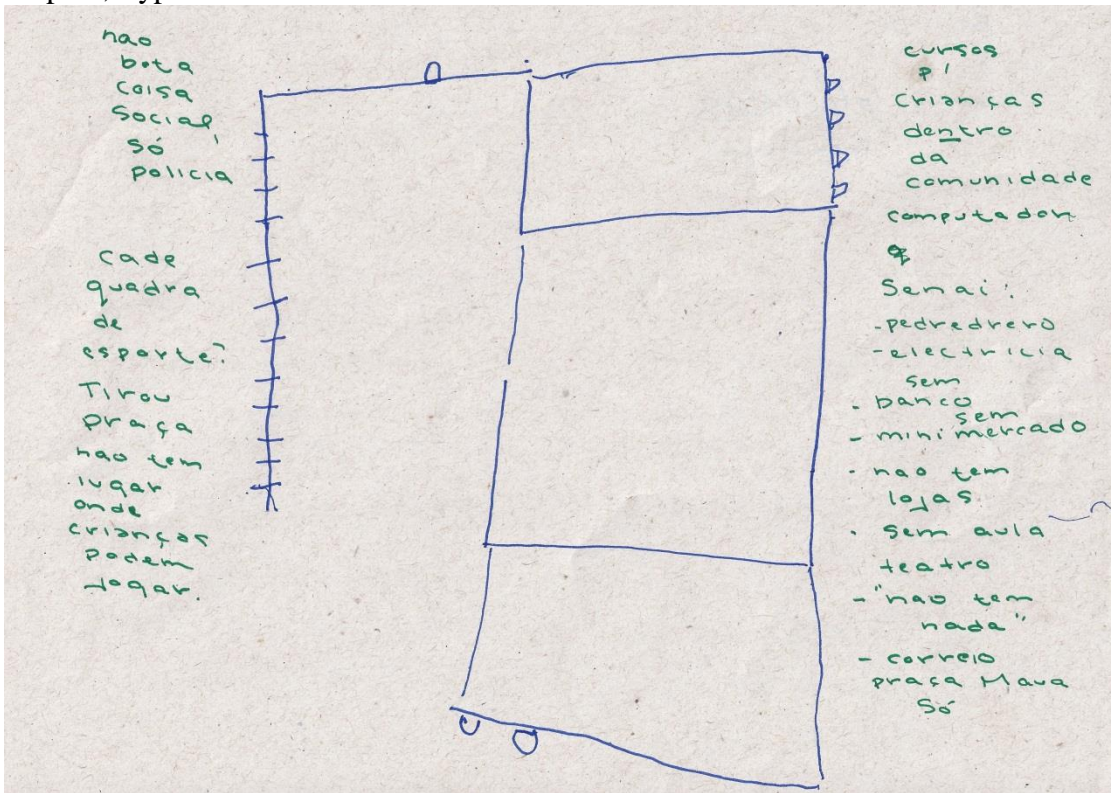 nao
bota
coisa
social,
só
policia
cade
quadra
de
esporte?
Tirou
praça
nao tem
lugar
onde
crianças
podem
jogar.
cursos
p'
crianças
dentro
da
comunidade
computador
Senai:
-pedredrero
-electricia
sem
- banco
sem
- minimercado
- nao tem
lojas
- sem aula
teatro
- "nao tem
nada"
- correio
praça Maua
Só